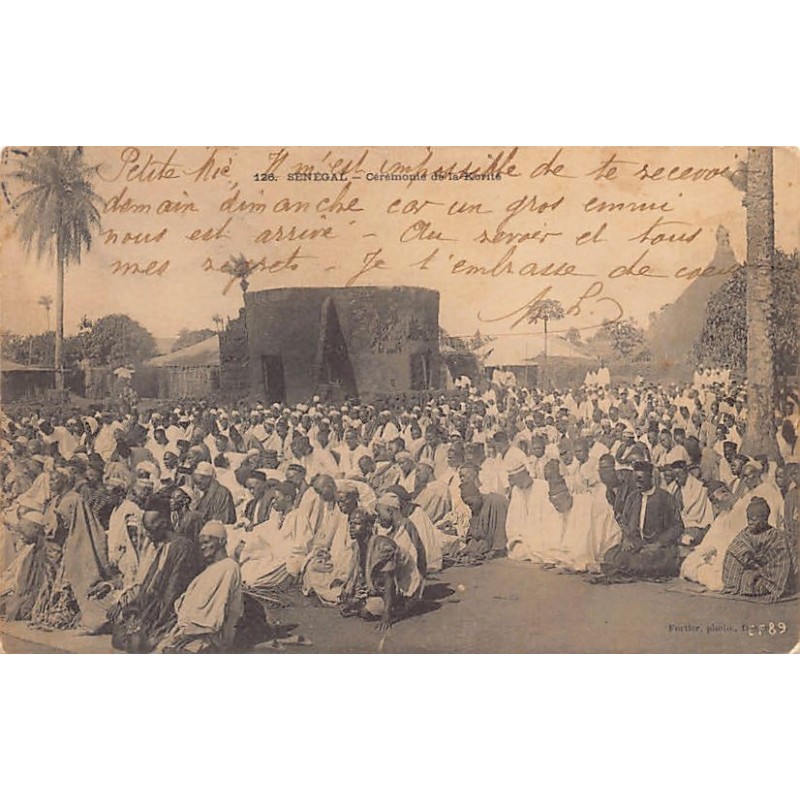 Petite Mie, Il m'est impossible de te recevoir
126. SÉNÉGAL - Cérémonie de la Korité
demain dimanche car un gros ennui
nous est arrivé - Au revoir et tous
mes regrets - Je t'embrasse de coeur
Fortier, photo., Dakar
CF89